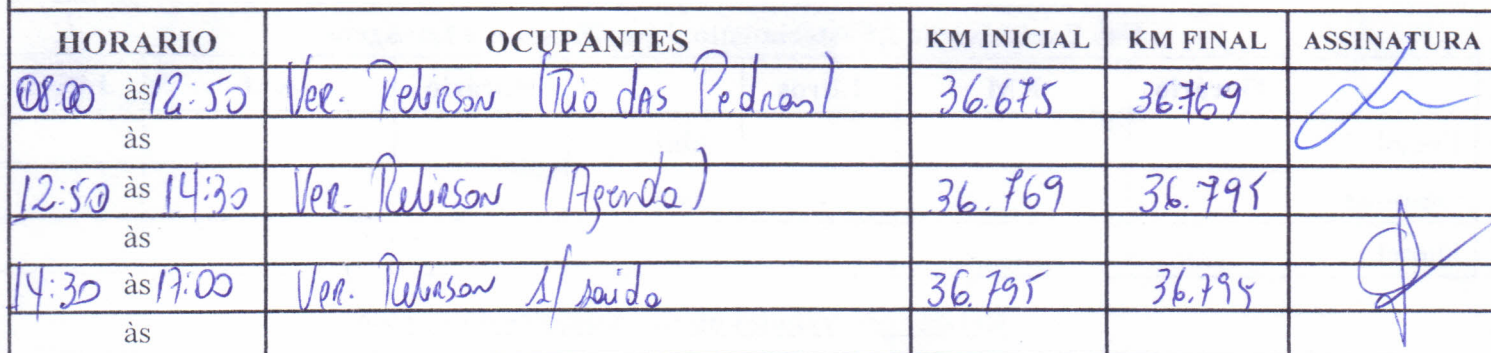 HORARIO OCUPANTES KM INICIAL KM FINAL ASSINATURA
08:00 às 12:50 Ver. Relinson (Rio das Pedras) 36.675 36.769
às
12:50 às 14:30 Ver. Relinson (Agenda) 36.769 36.795
às
14:30 às 17:00 Ver. Relinson s/ saida 36.795 36.795
às